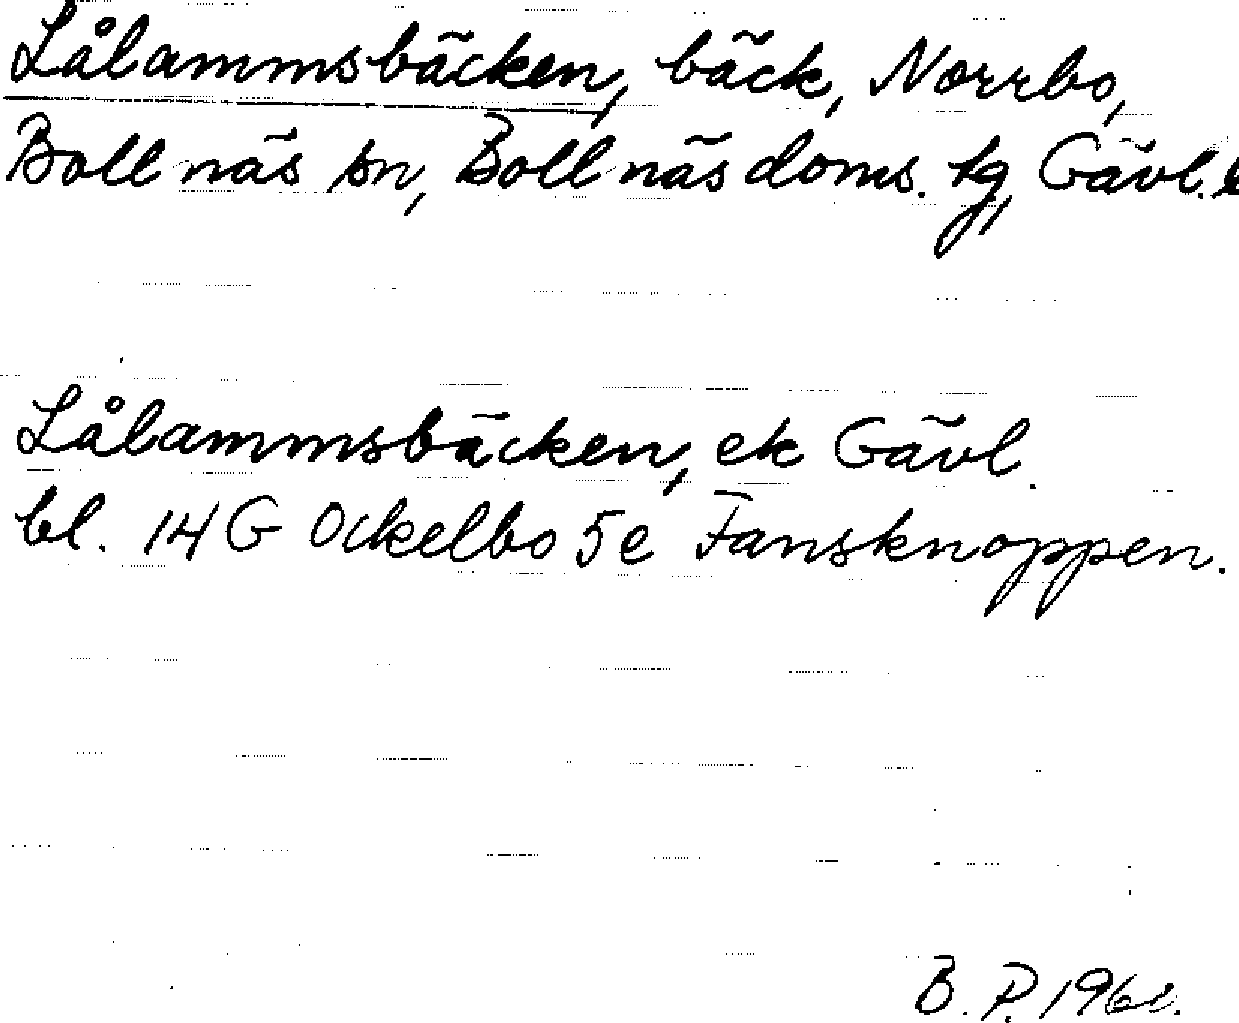 Lålammsbäcken, bäck, Norrbo,
Bollnäs sn, Bollnäs doms. tg, Gävl. l
Lålammsbäcken, ek Gävl.
bl. 14 G Ockelbo 5 e Fansknoppen.
B. P.